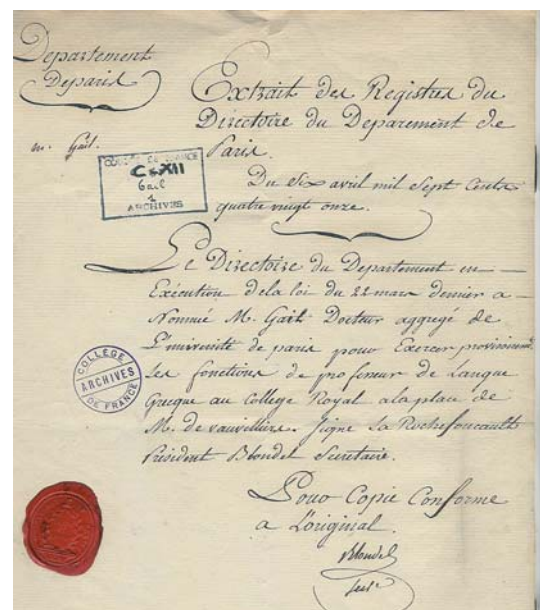 Departement
Deparis
m. Gail.
COLLÈGE DE FRANCE
C-XII
Gail
1
ARCHIVES
Extrait des Registres du
Directoire du Deparement de
Paris.
Du Six avril mil Sept Cents
quatre vingt onze.
Le Directoire du Departement en
Exécution dela loi du 22 mars dernier a
Nommé M. Gail Docteur aggrégé de
L'université de paris pour Exercer provisoirem.t
Les fonctions de professeur de Langue
Grecque au College Royal ala place de
M. de vauvilliers. Signé La Rochefoucault
Président Blondel Secretaire.
COLLÈGE
ARCHIVES
DE FRANCE
Pour Copie Conforme
a L'original.
Blondel